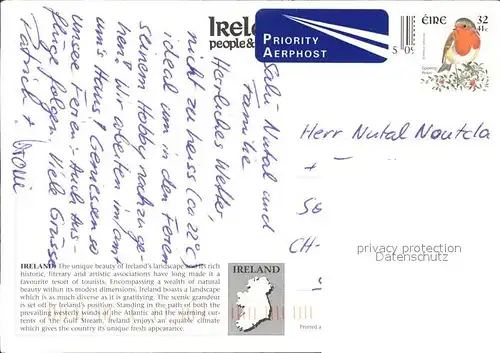 Ireland
people &
PRIORITY
AERPHOST
ÉIRE 32
41c
Spideog
Robin
5 09
Sali Nutal und
Familie
Herrliches Wetter,
nicht zu heiss (ca 22°C)
ideal um in den Ferien
seinem Hobby nachzuge-
hen! Wir arbeiten im/am/
um's Haus! Geniessen so
unsere Ferien - Auch Aus-
flüge folgen. Viele Grüsse
Patrick +
Herr Nutal
CH-
privacy protection
Datenschutz
IRELAND: The unique beauty of Ireland's landscape and its rich
historic, literary and artistic associations have long made it a
favourite resort of tourists. Encompassing a wealth of natural
beauty within its modest dimensions, Ireland boasts a landscape
which is as much diverse as it is gratifying. The scenic grandeur
is set off by Ireland's position. Standing in the path of both the
prevailing westerly winds of the Atlantic and the warming cur-
rents of the Gulf Stream, Ireland enjoys an equable climate
which gives the country its unique fresh appearance.
IRELAND
Printed a